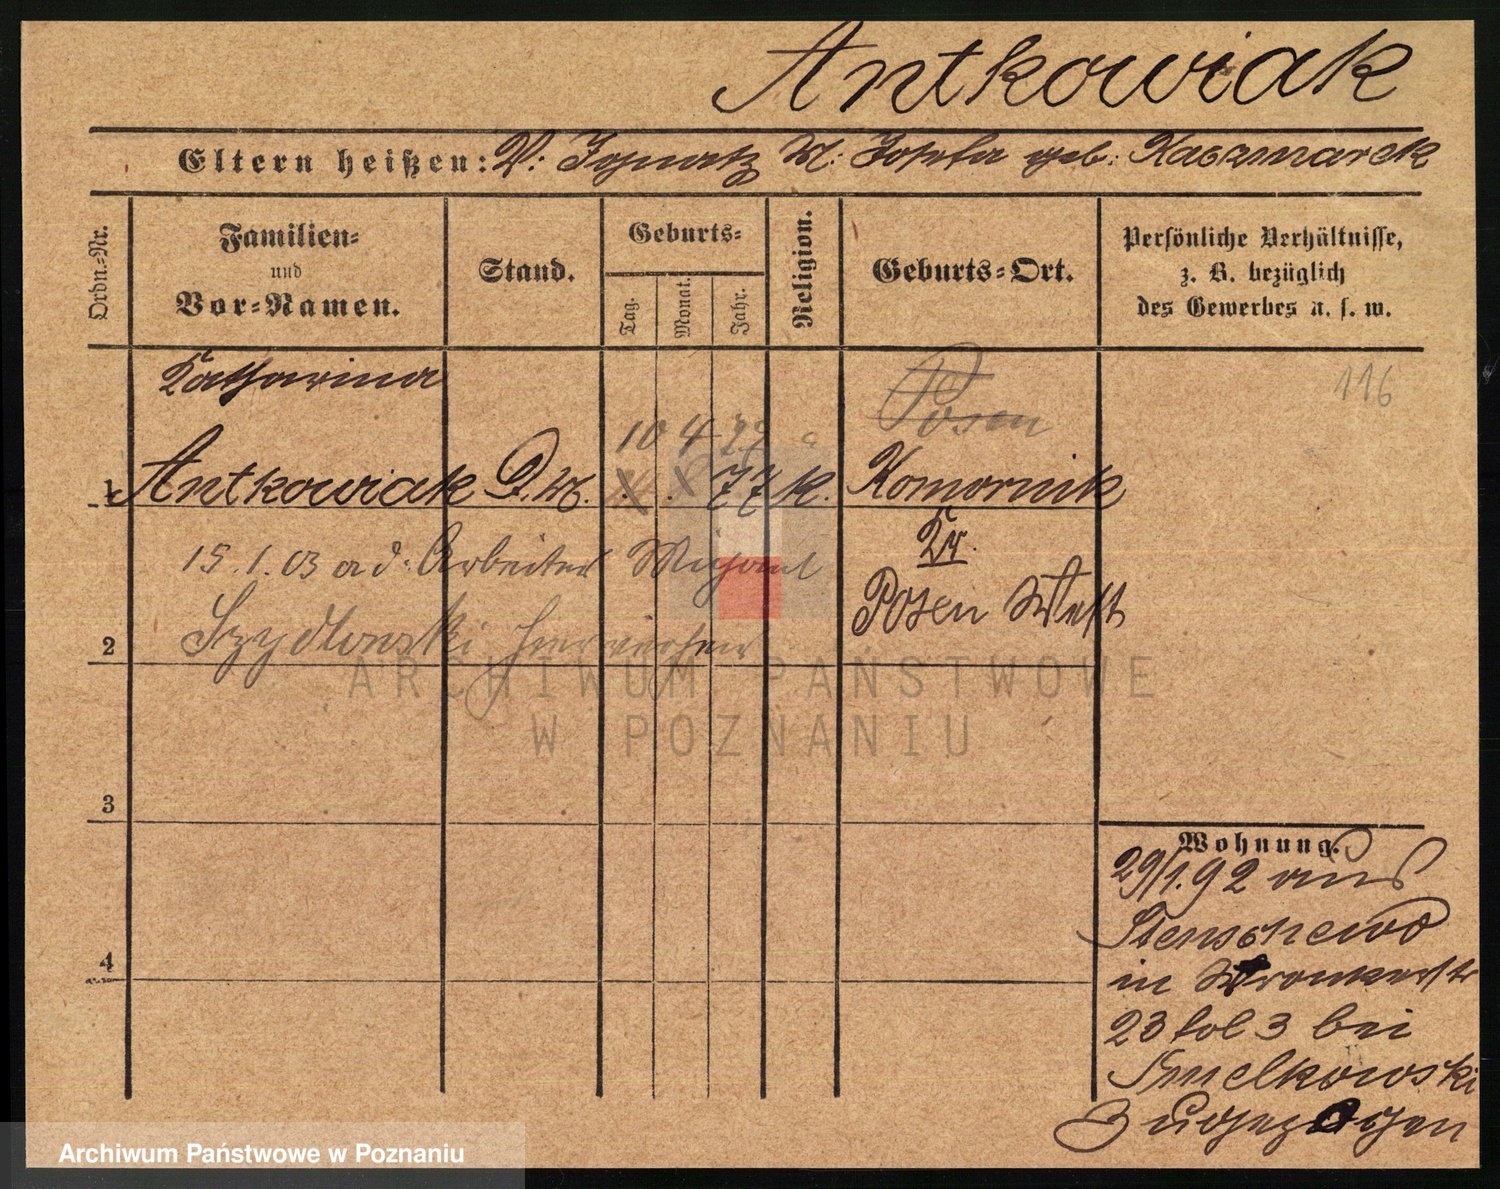 Antkowiak
Eltern heißen: V: Ignatz M: Josefa geb: Kaczmarek
Ordn.-Nr.
Familien-
und
Vor-Namen.
Stand.
Geburts-
Tag.
Monat.
Jahr.
Religion.
Geburts-Ort.
Persönliche Verhältnisse,
z. B. bezüglich
des Gewerbes u. s. w.
Katharina
Posen
116
10 4 77
1 Antkowiak D.M. 77 K. Komornik
Kr.
15.1.03 ad. Arbeiter
Posen West
2 Szydlowski
3
Wohnung.
29/1.92 aus
Stenschewo
4
in Wronkerstr
23 fol 3 bei
Smelkowski
zugezogen
ARCHIWUM PAŃSTWOWE
W POZNANIU
Archiwum Państwowe w Poznaniu